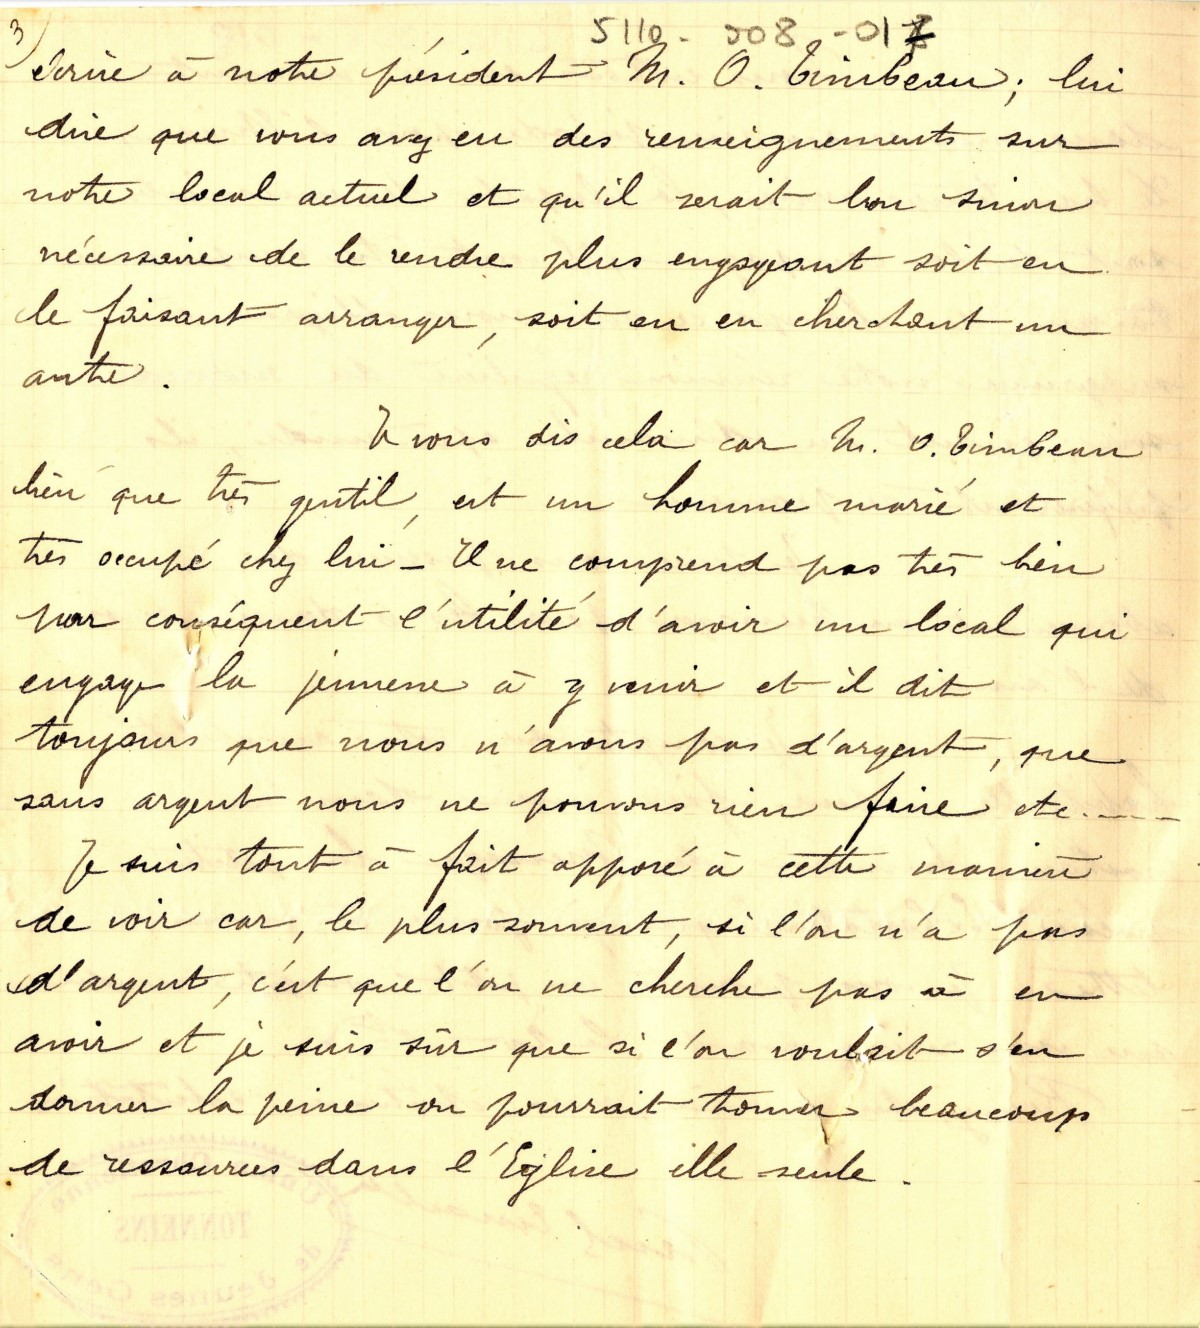 3)
5110 - 208 - 01
écrire à notre président M. O. Timbeau ; lui
dire que vous avez eu des renseignements sur
notre local actuel et qu'il serait bon sinon
nécessaire de le rendre plus engageant soit en
le faisant arranger, soit en en cherchant un
autre .
Je vous dis cela car M. O. Timbeau
bien que très gentil, est un homme marié et
très occupé chez lui _ Il ne comprend pas très bien
par conséquent l'utilité d'avoir un local qui
engage la jeunesse à y venir et il dit
toujours que nous n'avons pas d'argent, que
sans argent nous ne pouvons rien faire etc.....
Je suis tout à fait opposé à cette manière
de voir car, le plus souvent, si l'on n'a pas
d'argent, c'est que l'on ne cherche pas à en
avoir et je suis sûr que si l'on voulait s'en
donner la peine on pourrait trouver beaucoup
de ressources dans l'Eglise elle seule .
TONNEINS
de Jeunes Gens